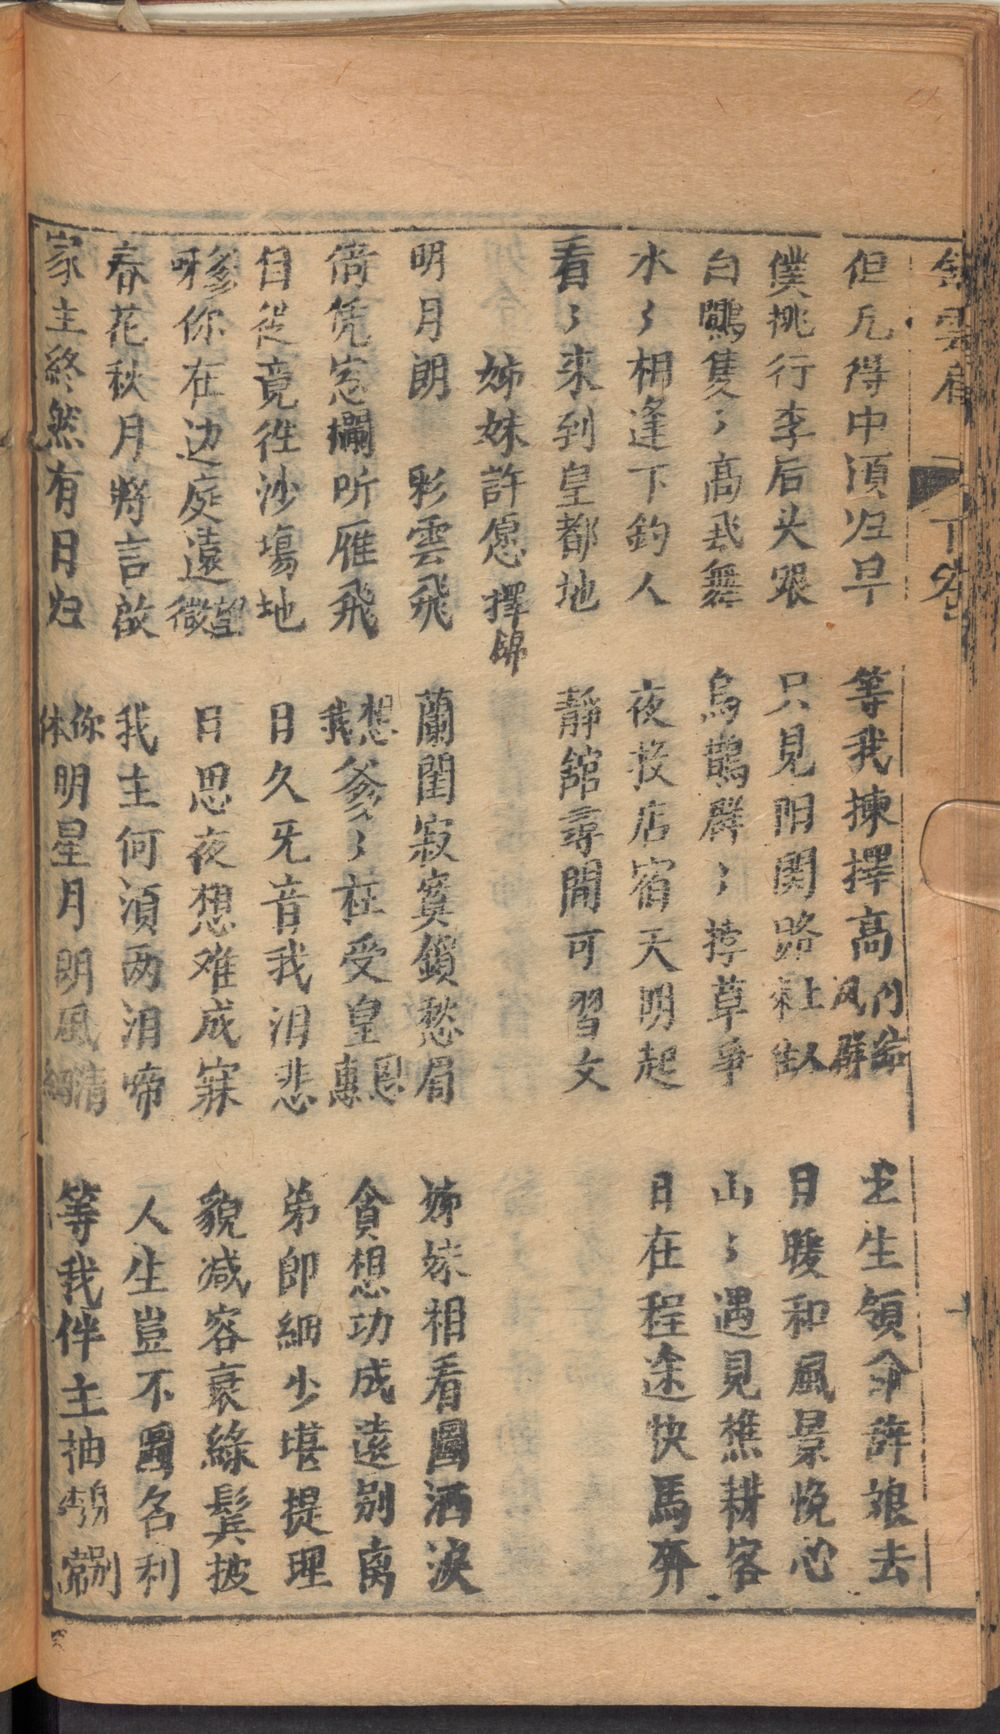 但凡得中須归早 等我揀擇高門節凤群 主生領命辞娘去
僕挑行李后头跟 只見阳関路上人 日暖和風景悦心
白鷳隻〻高飛舞 烏鵲群〻撑草爭 山〻遇見樵耕客
水〻相逢下釣人 夜投店宿天明起 日在程途快馬奔
看〻來到皇都地 靜舘尋間可習文
姊妹許愿擇錦
明月朗 彩雲飛 蘭閨寂寞鎖愁眉 姊妹相看圖洒淚
倚凭窓欄听雁飛 想我爹〻在受皇恩惠 貪想功成遠別离
自從竟徃沙塲地 日久无音我泪悲 弟郎細少堪提理
爹呀你在边庭遠望 日思夜想难成寐 貌减容衰綠鬓披
春花秋月將言啟 我主何須两泪啼 人生豈不圖名利
家主終然有日归 你休明星月明風清 等我伴主抽
下卷